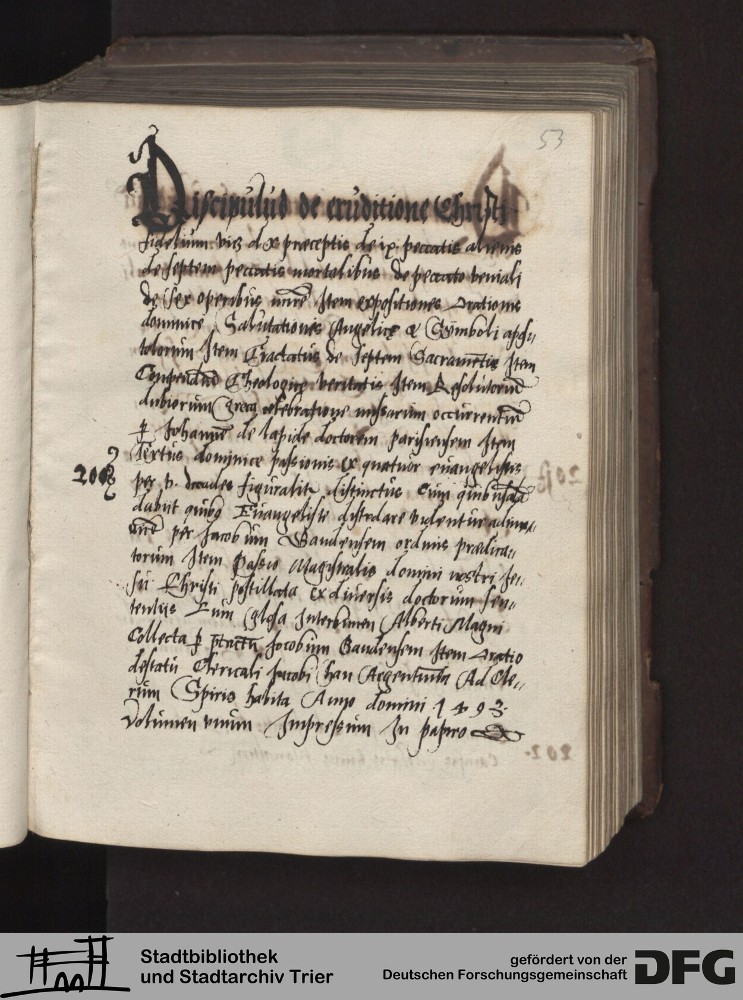 53
Discipulus de eruditione Christi
fidelium viz d x præceptis de ix peccatis alienis
de septem peccatis mortalibus de peccato veniali
de sex operibus Item expositiones orationis
dominice Salutationes Angelice & Symboli apos-
tolorum Item Tractatus de septem Sacramentis Item
Theologice veritatis Item Resolutoriu
dubiorum circa celebratione missarum occurrentiu
p Johanne de lapide doctorem parisiensem Item
Textus dominice passionis ex quatuor euangelistis
200
per decades distinctus
Euangeliste discordare videntur
per Jacobum Gaudensem ordinis prædica-
torum Item Passio Magistralis domini nostri Je-
su Christi postillata ex diuersis doctorum sen-
tentiis Cum glosa Interlinea Alberti Magni
Collecta p Jacobum Gaudensem Item oratio
destatu Clericali Jacobi han Argentinen Ad Cle-
rum Spiris habita Anno domini 1493.
Volumen vnum Impressum In papiro
202.
Stadtbibliothek
und Stadtarchiv Trier
gefördert von der
Deutschen Forschungsgemeinschaft
DFG